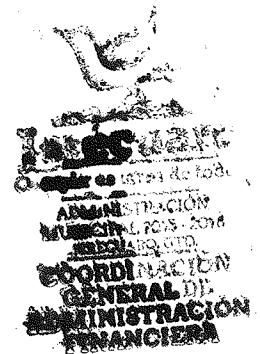 Jerécuaro
es tarea de todos
ADMINISTRACIÓN
MUNICIPAL 2015 - 2018
JERÉCUARO, GTO.
COORDINACIÓN
GENERAL DE
ADMINISTRACIÓN
FINANCIERA